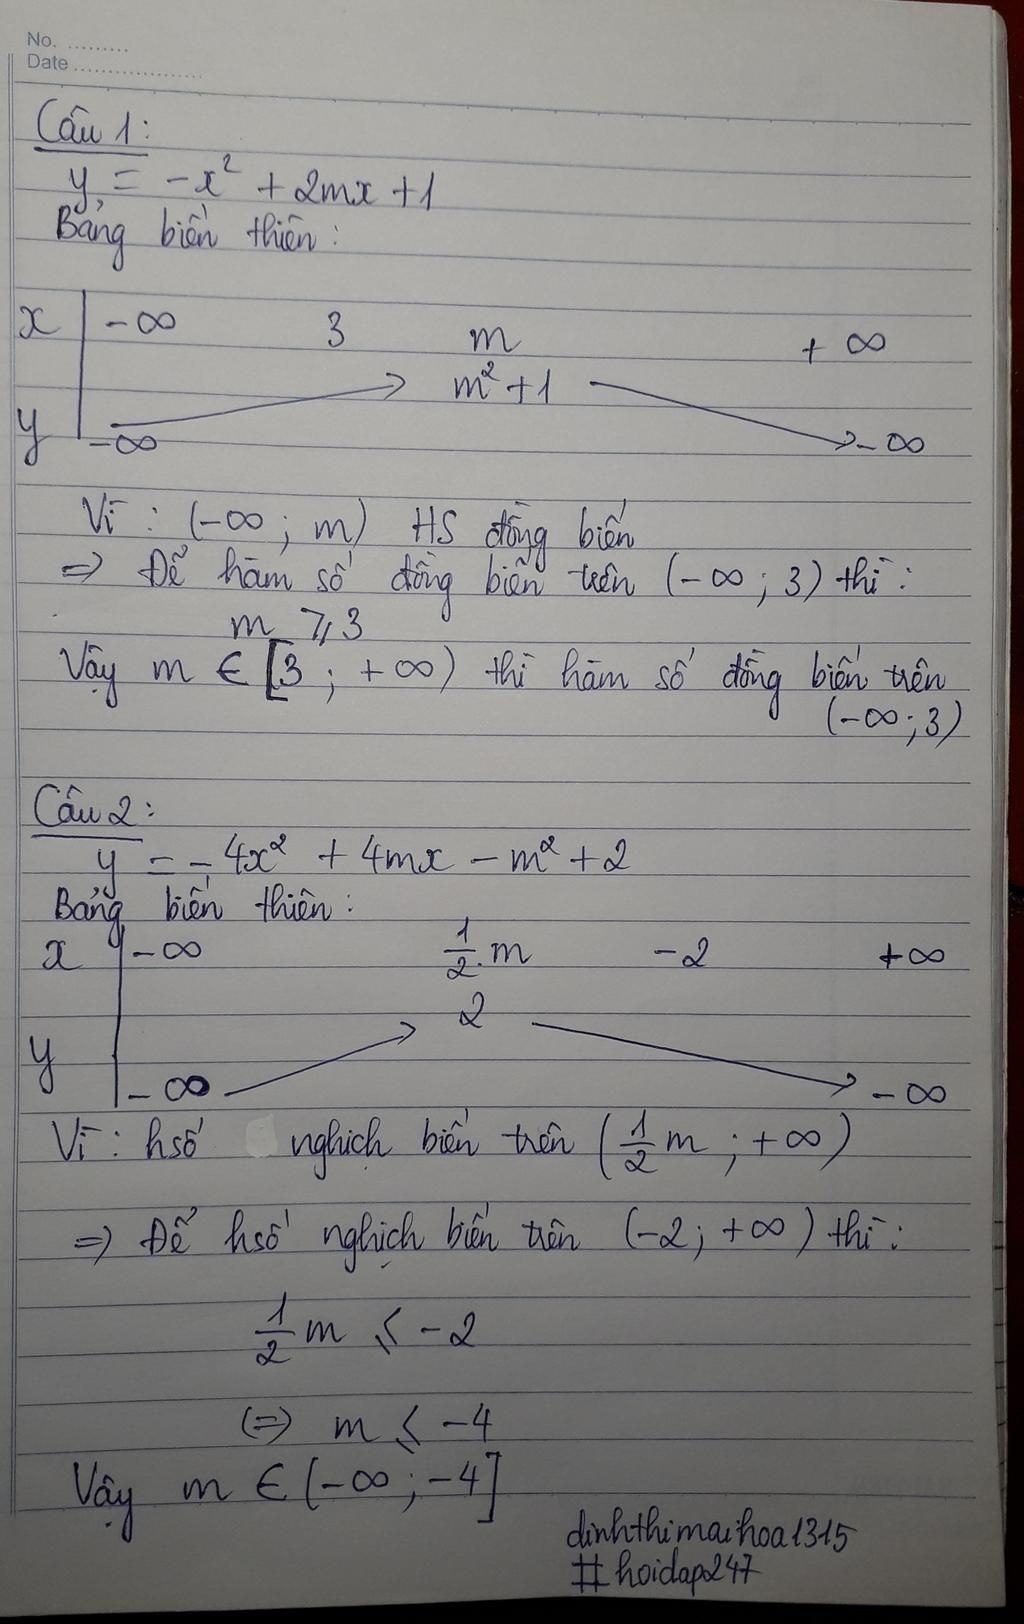 No. .........
Date ...................
Câu 1:
y = -x² + 2mx + 1
Bảng biến thiên:
x -∞ 3 m +∞
m² + 1
y -∞ -∞
Vì : (-∞ ; m) HS đồng biến
=> Để hàm số đồng biến trên (-∞ ; 3) thì :
m ⩾ 3
Vậy m ∈ [3 ; +∞) thì hàm số đồng biến trên
(-∞ ; 3)
Câu 2:
y = -4x² + 4mx - m² + 2
Bảng biến thiên :
x -∞ 1/2.m -2 +∞
2
y -∞ -∞
Vì : hsố nghịch biến trên (1/2 m ; +∞)
=> Để hsố nghịch biến trên (-2 ; +∞) thì :
1/2 m ⩽ -2
(=) m ⩽ -4
Vậy m ∈ (-∞ ; -4]
dinhthimaihoa1315
#hoidap247